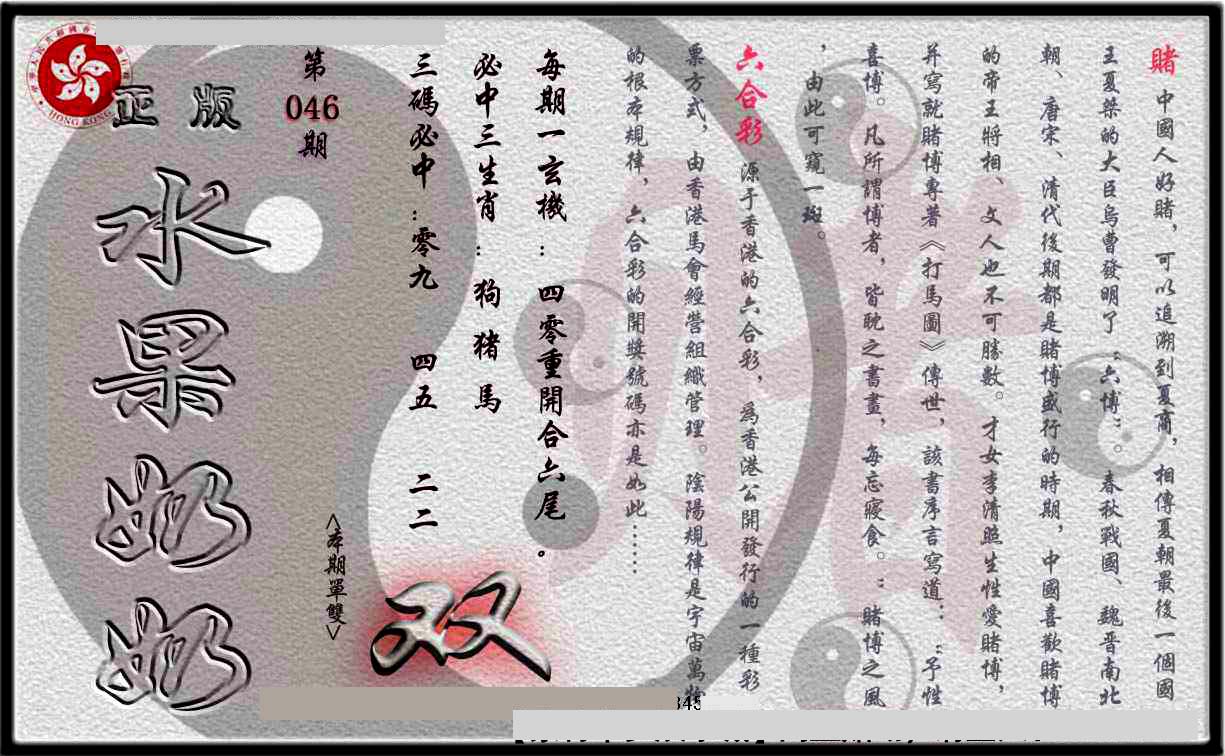 賭 中國人好賭，可以追溯到夏商，相傳夏朝最後一個國
王夏桀的大臣烏曹發明了“六博”。春秋戰國、魏晉南北
朝、唐宋、清代後期都是賭博盛行的時期，中國喜歡賭博
的帝王將相、文人也不可勝數。才女李清照生性愛賭博，
并寫就賭博專著《打馬圖》傳世，該書序言寫道：“予性
喜博。凡所謂博者，皆耽之書畫，每忘寢食。”賭博之風
，由此可窺一斑。
六合彩 源于香港的六合彩，為香港公開發行的一種彩
票方式，由香港馬會經營組織管理。陰陽規律是宇宙萬物
的根本規律，六合彩的開獎號碼亦是如此……
每期一玄機：四零重開合六尾。
必中三生肖：狗豬馬
三碼必中：零九 四五 二二
<本期單雙>
双
第
046
期
正版
水果奶奶
HONG KONG